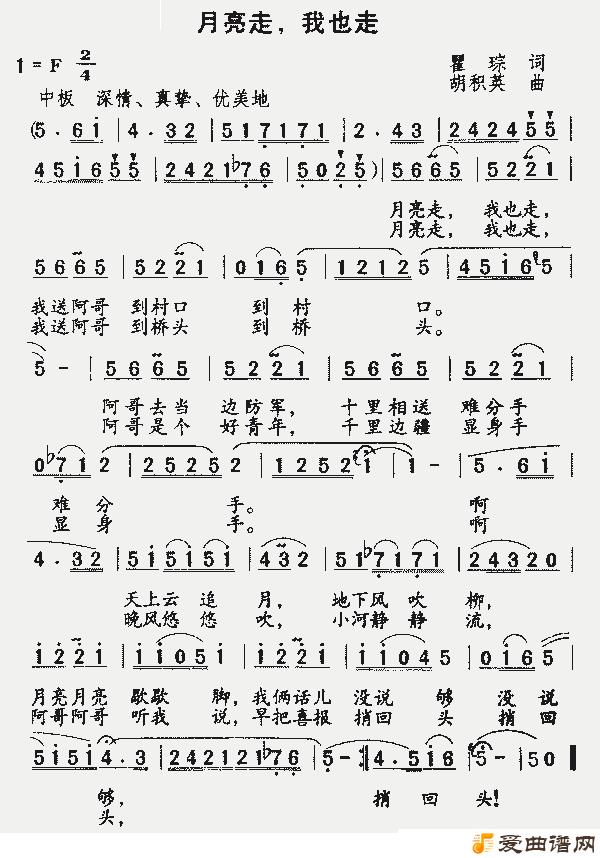 月亮走，我也走
1 = F 2/4
瞿 琮 词
胡积英 曲
中板 深情、真挚、优美地
(5 . 6i | 4 . 32 | 517171 | 2 . 43 | 242455 |
45i655 | 2421♭76 | 5025) | 5665 | 5221 |
月亮走， 我也走，
月亮走， 我也走，
5665 | 5221 | 0165 | 12125 | 45i65
我送阿哥 到村口 到 村 口。
我送阿哥 到桥头 到 桥 头。
5 - | 5665 | 5221 | 5665 | 5221 |
阿哥去当 边防军， 十里相送 难分手
阿哥是个 好青年， 千里边疆 显身手
0♭712 | 25252 | 1252i | i - | 5 . 6i |
难 分 手。 啊
显 身 手。 啊
4 . 32 | 5i5i5i | 432 | 51♭7171 | 24320 |
天上云 追 月， 地下风 吹 柳，
晚风悠 悠 吹， 小河静 静 流，
i22i | ii05i | i22i | ii045 | 0i65
月亮月亮 歇歇 脚，我俩话儿 没说 够 没 说
阿哥阿哥 听我 说，早把喜报 捎回 头 捎 回
5i5i4.3 | 242121♭76 | 5 - :| 4.5i6 | 5 - | 50 ‖
够， 捎 回 头！
头，
爱曲谱网